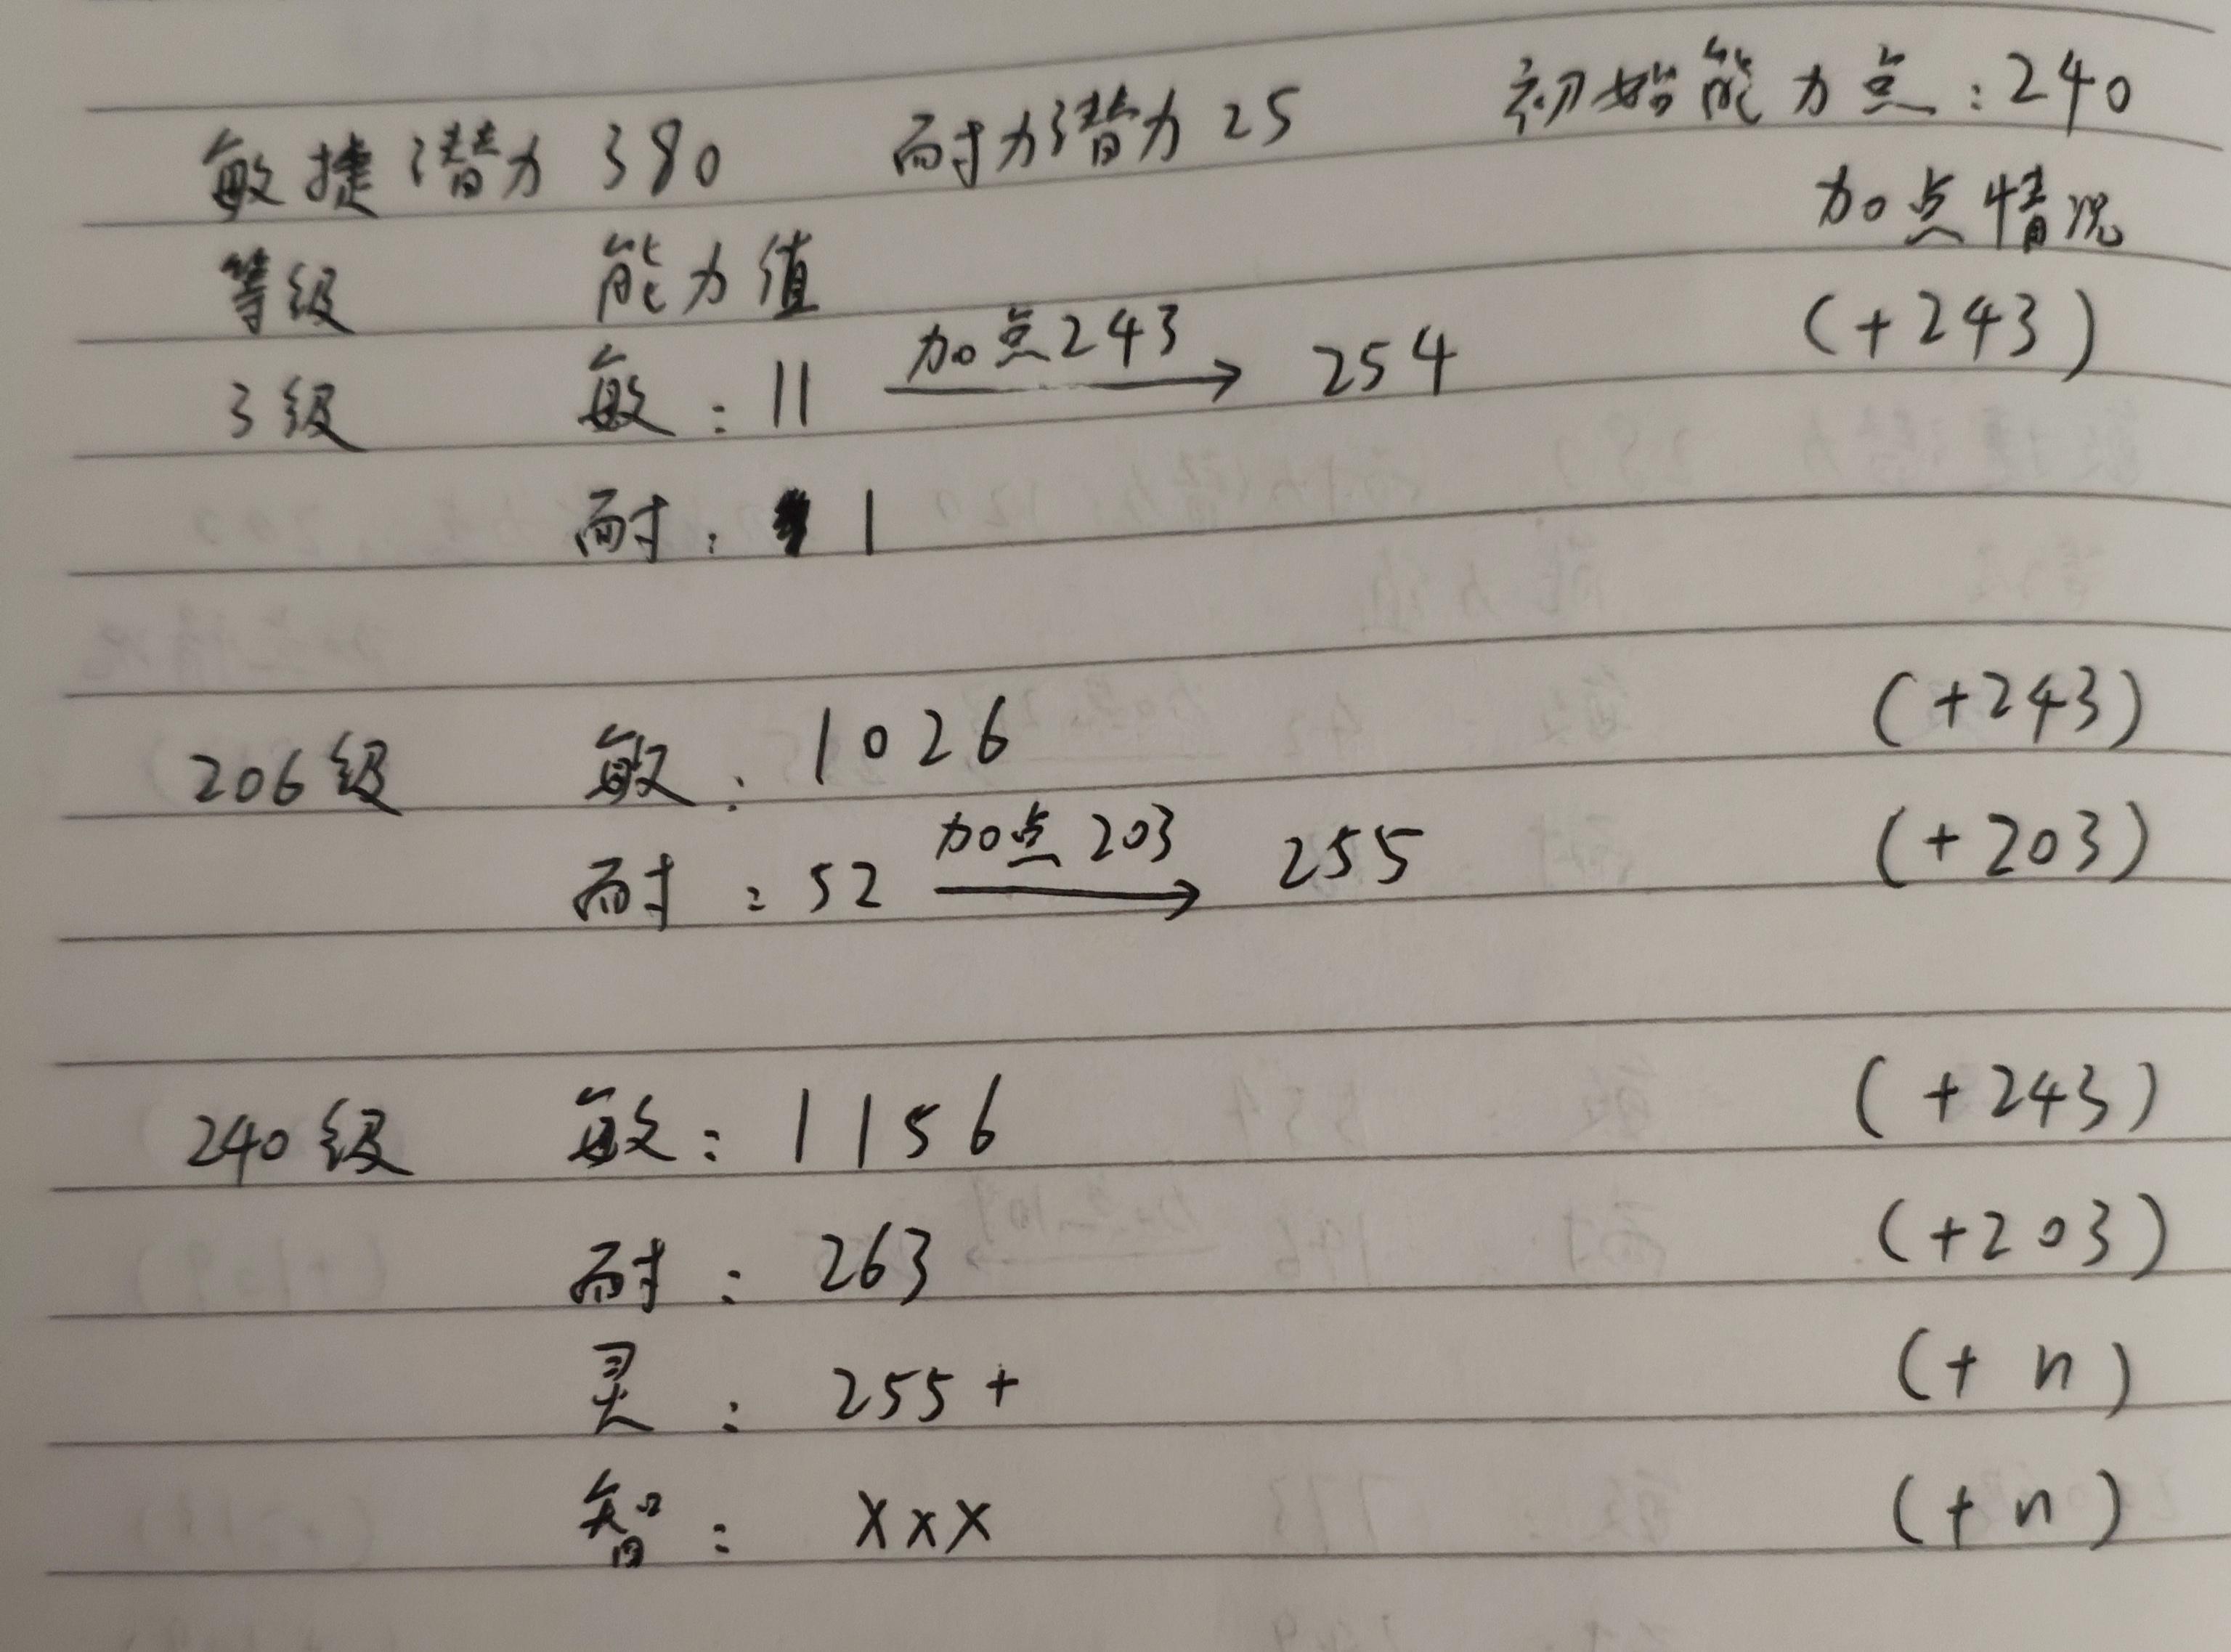 敏捷潜力 380 耐力潜力 25 初始能力点：240
等级 能力值 加点情况
3级 敏：11 加点243 → 254 (+243)
耐：1
206级 敏：1026 (+243)
耐：52 加点203 → 255 (+203)
240级 敏：1156 (+243)
耐：263 (+203)
灵：255+ (+n)
智：xxx (+n)